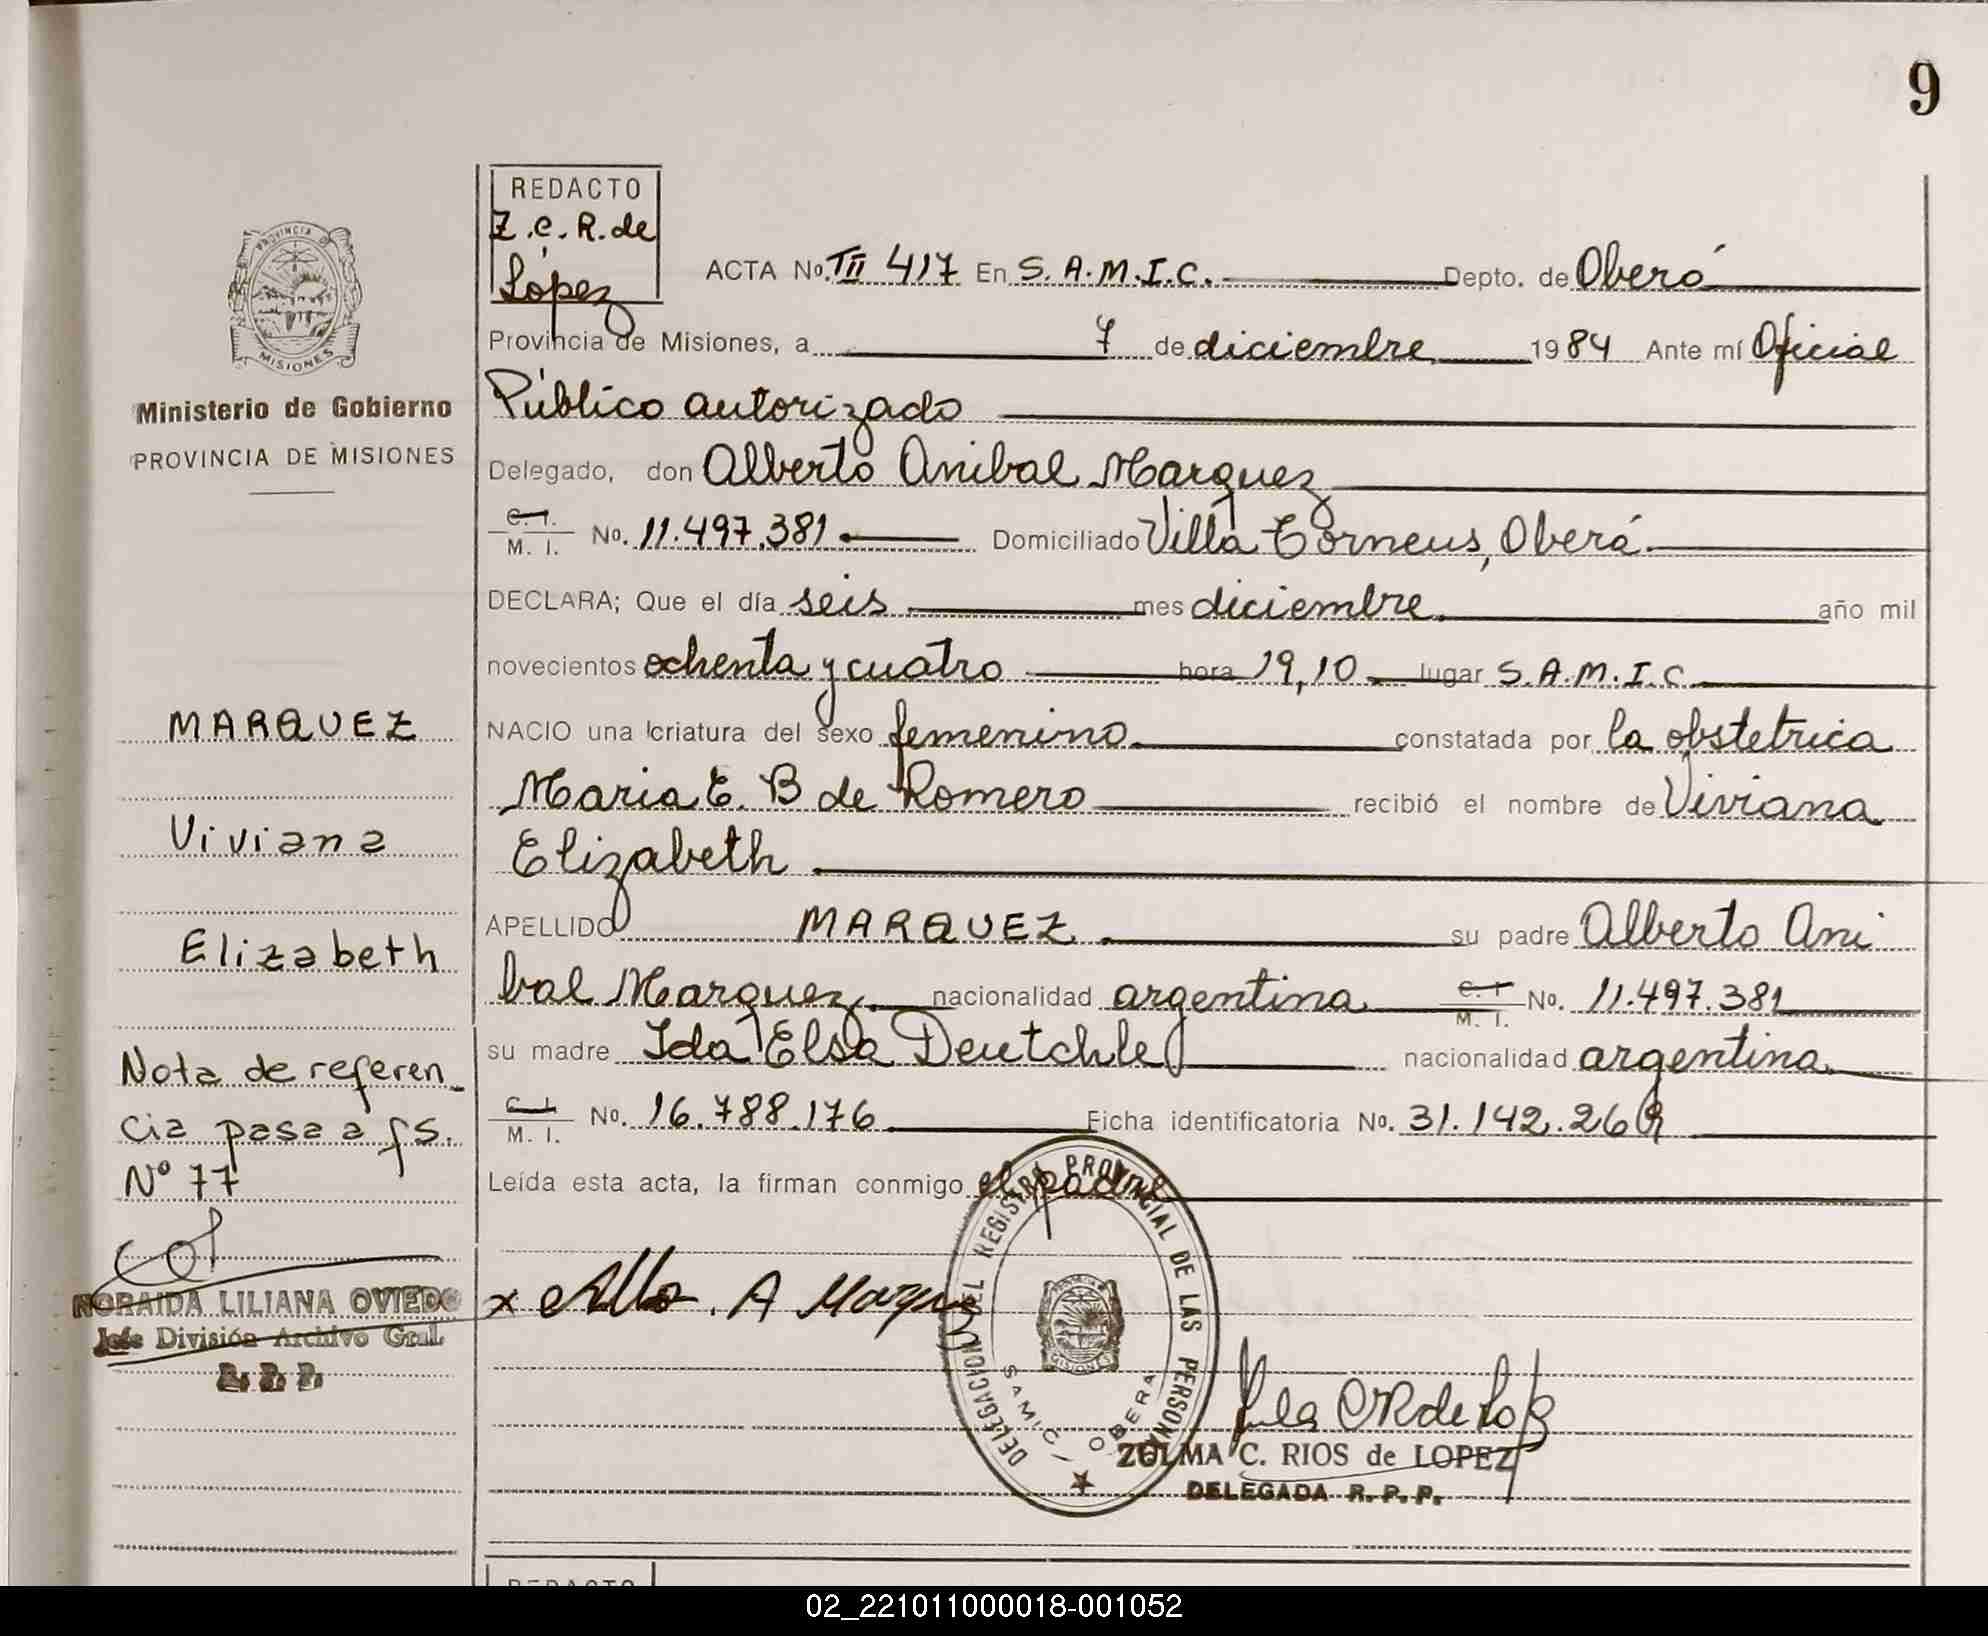 9
REDACTO
Z.C.R. de
López
PROVINCIA DE
MISIONES
Ministerio de Gobierno
PROVINCIA DE MISIONES
ACTA No. TII 417 En S.A.M.I.C. Depto. de Oberá
Provincia de Misiones, a 7 de diciembre 1984 Ante mí Oficial
Público autorizado
Delegado, don Alberto Anibal Marquez
C. I.
M. I. No. 11.497.381 Domiciliado Villa Torneus, Oberá
DECLARA; Que el día seis mes diciembre año mil
novecientos ochenta y cuatro hora 19,10 lugar S.A.M.I.C
NACIO una criatura del sexo femenino constatada por la obstetrica
Maria E. B de Romero recibió el nombre de Viviana
Elizabeth
APELLIDO MARQUEZ su padre Alberto Ani
bal Marquez nacionalidad argentina C. I. M. I. No. 11.497.381
su madre Ida Elsa Deutchle nacionalidad argentina
C. I.
M. I. No. 16.788.176 Ficha identificatoria No. 31.142.269
Leída esta acta, la firman conmigo el padre
MARQUEZ
Viviana
Elizabeth
Nota de referen-
cia pasa a fs.
N° 77
NORAIDA LILIANA OVIEDO
Jefe División Archivo Gral.
R. P. P.
x Alb. A Marquez
DELEGACION DEL REGISTRO PROVINCIAL DE LAS PERSONAS
MISIONES
SAMIC / OBERA
ZULMA C. RIOS de LOPEZ
DELEGADA R. P. P.
REDACTO
02_221011000018-001052